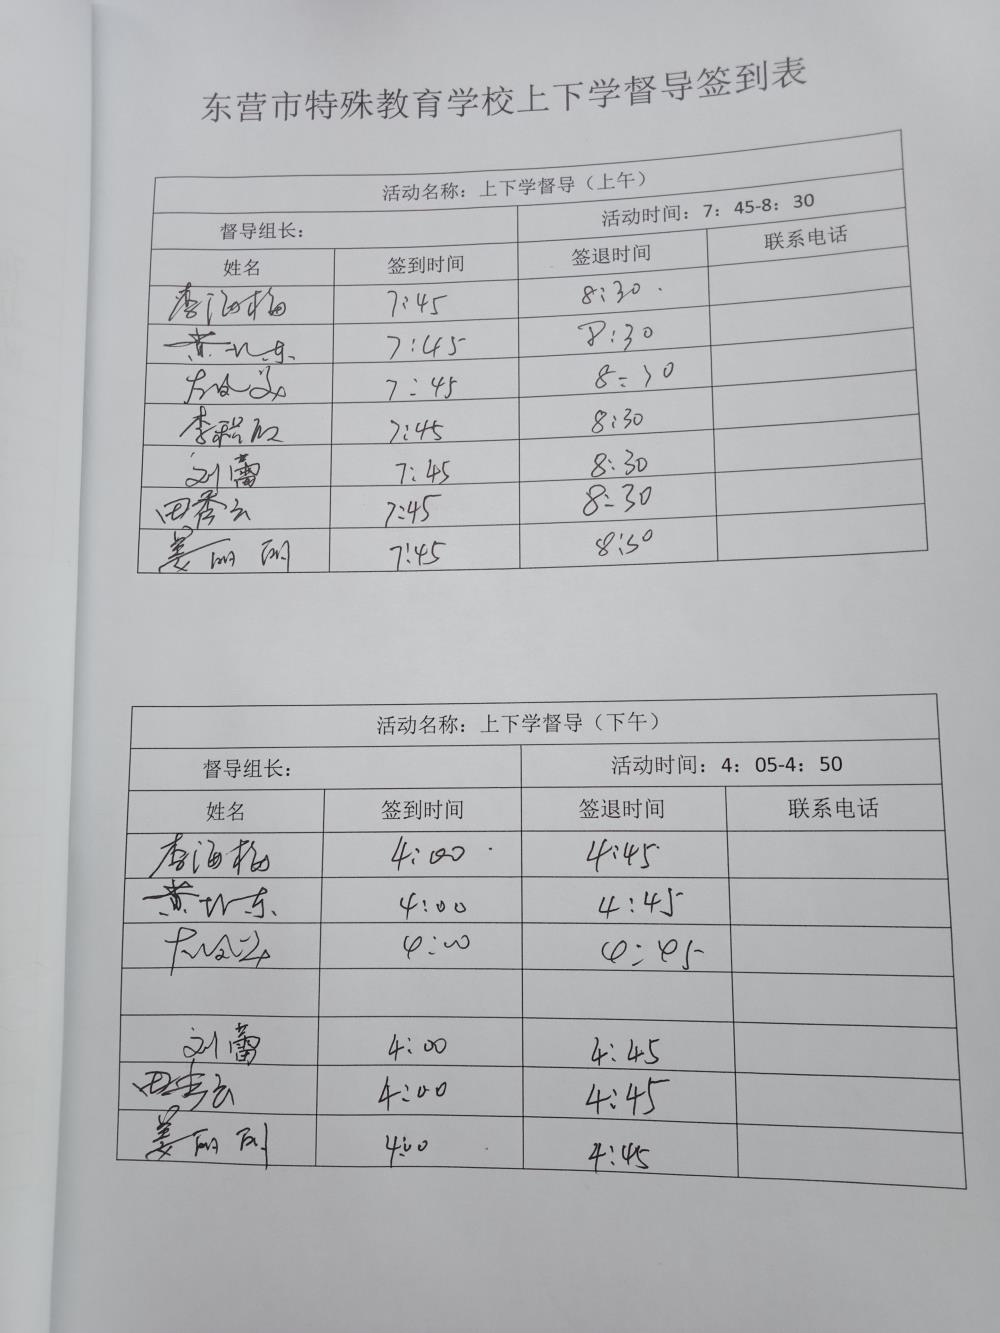 东营市特殊教育学校上下学督导签到表
活动名称：上下学督导（上午）
督导组长： 活动时间：7：45-8：30
姓名 签到时间 签退时间 联系电话
李海梅 7:45 8:30
黄 东 7:45 8:30
7:45 8:30
李 7:45 8:30
刘蕾 7:45 8:30
田秀云 7:45 8:30
姜丽 7:45 8:30
活动名称：上下学督导（下午）
督导组长： 活动时间：4：05-4：50
姓名 签到时间 签退时间 联系电话
李海梅 4:00 4:45
黄 东 4:00 4:45
4:00 4:45
刘蕾 4:00 4:45
田秀云 4:00 4:45
姜丽 4:00 4:45